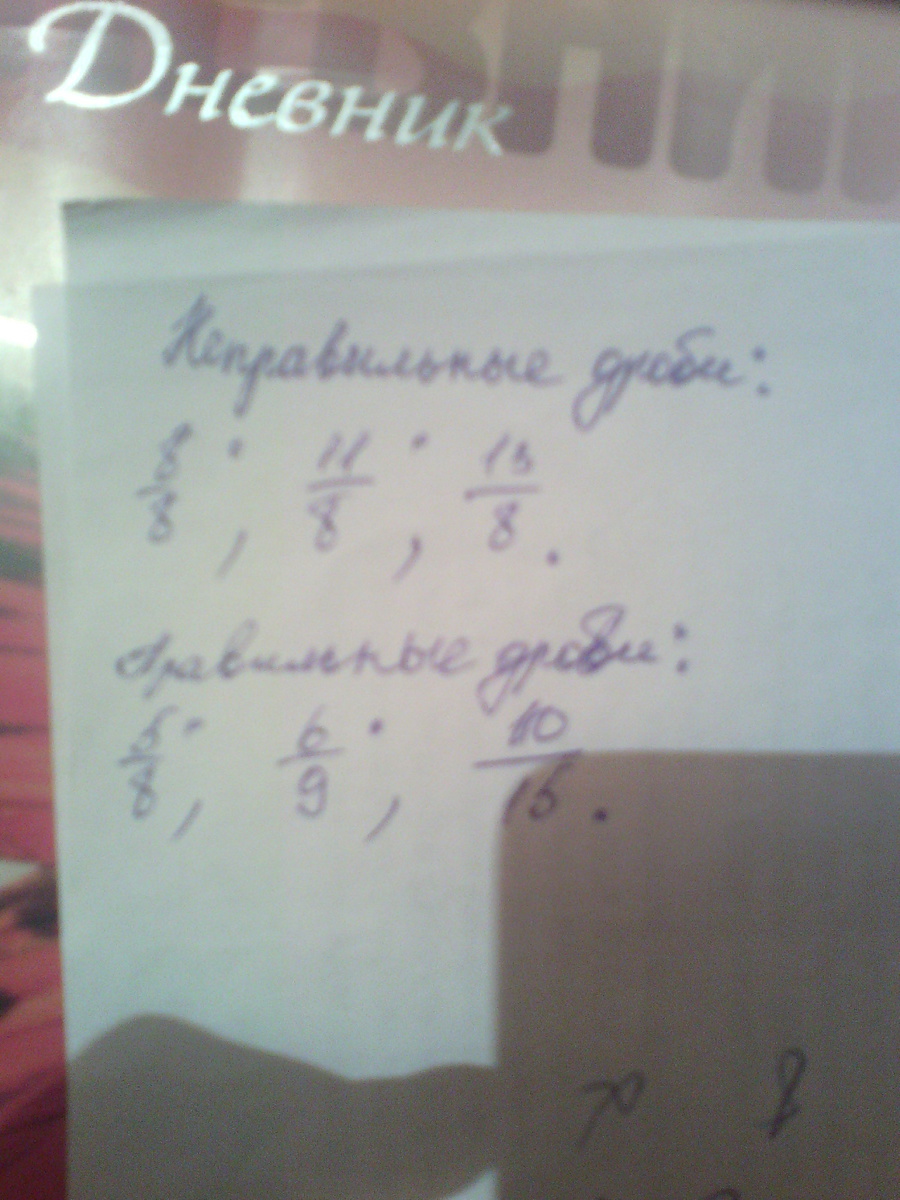 Дневник
Неправильные дроби:
8/8 ; 11/8 ; 13/8 .
Правильные дроби:
5/8 ; 6/9 ; 10/15 .